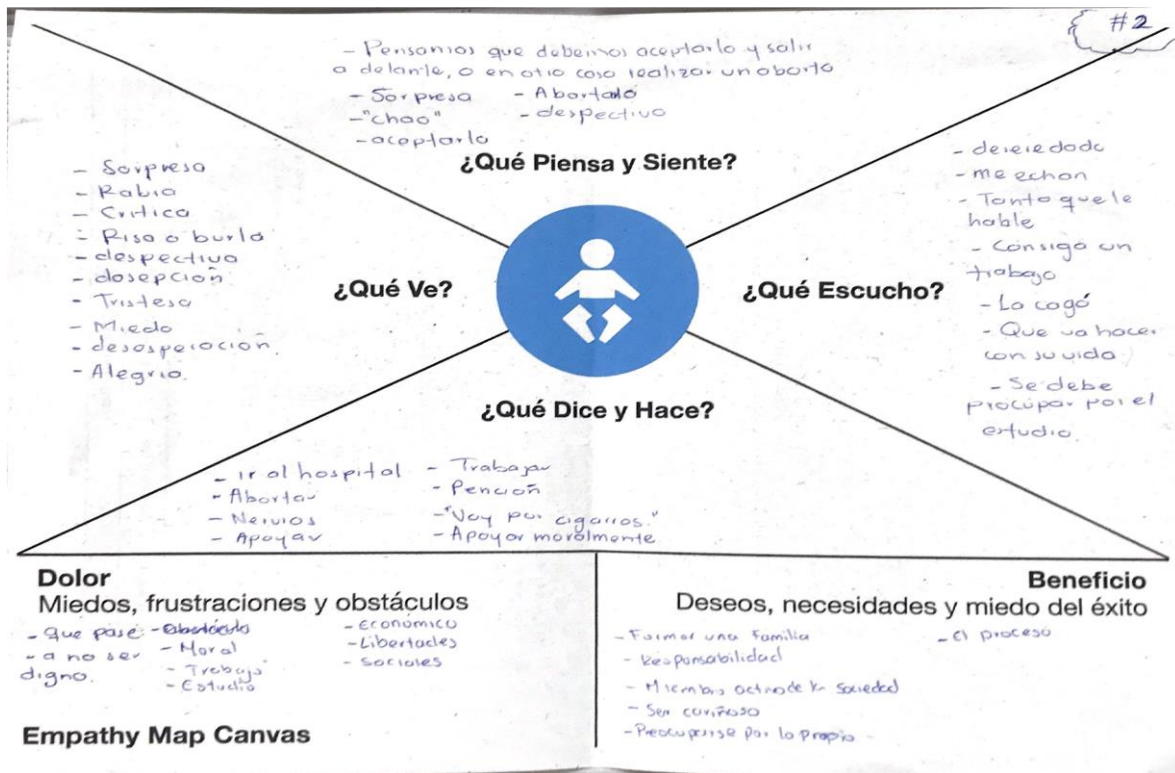 #2
- Pensamos que debemos aceptarlo y salir
a delante, o en otro caso realizar un aborto
- Sorpresa - Abortaló
- "chao" - despectivo
- aceptarlo
¿Qué Piensa y Siente?
- Sorpresa
- Rabia
- Critica
- Risa o burla
- despectivo
- dosepción
- Tristesa
- Miedo
- desesperación.
- Alegria.
¿Qué Ve?
¿Qué Escucho?
- me echan
- Tanto que le
hable
- Consiga un
trabajo
- La cagó
- Que va hacer
con su vida
- Se debe
procupar por el
estudio.
¿Qué Dice y Hace?
- ir al hospital - Trabajar
- Abortar - Pención
- Nervios - "Voy por cigarros."
- Apoyar - Apoyar moralmente
Dolor
Miedos, frustraciones y obstáculos
- que pasé
- a no ser
digno.
- Moral
- Trabajo
- Estudio
- Económico
- Libertades
- Sociales
Beneficio
Deseos, necesidades y miedo del éxito
- Formar una familia - el proceso
- Responsabilidad
- Miembro activo de la sociedad
- Ser cariñoso
- Preocuparse por lo propio -
Empathy Map Canvas